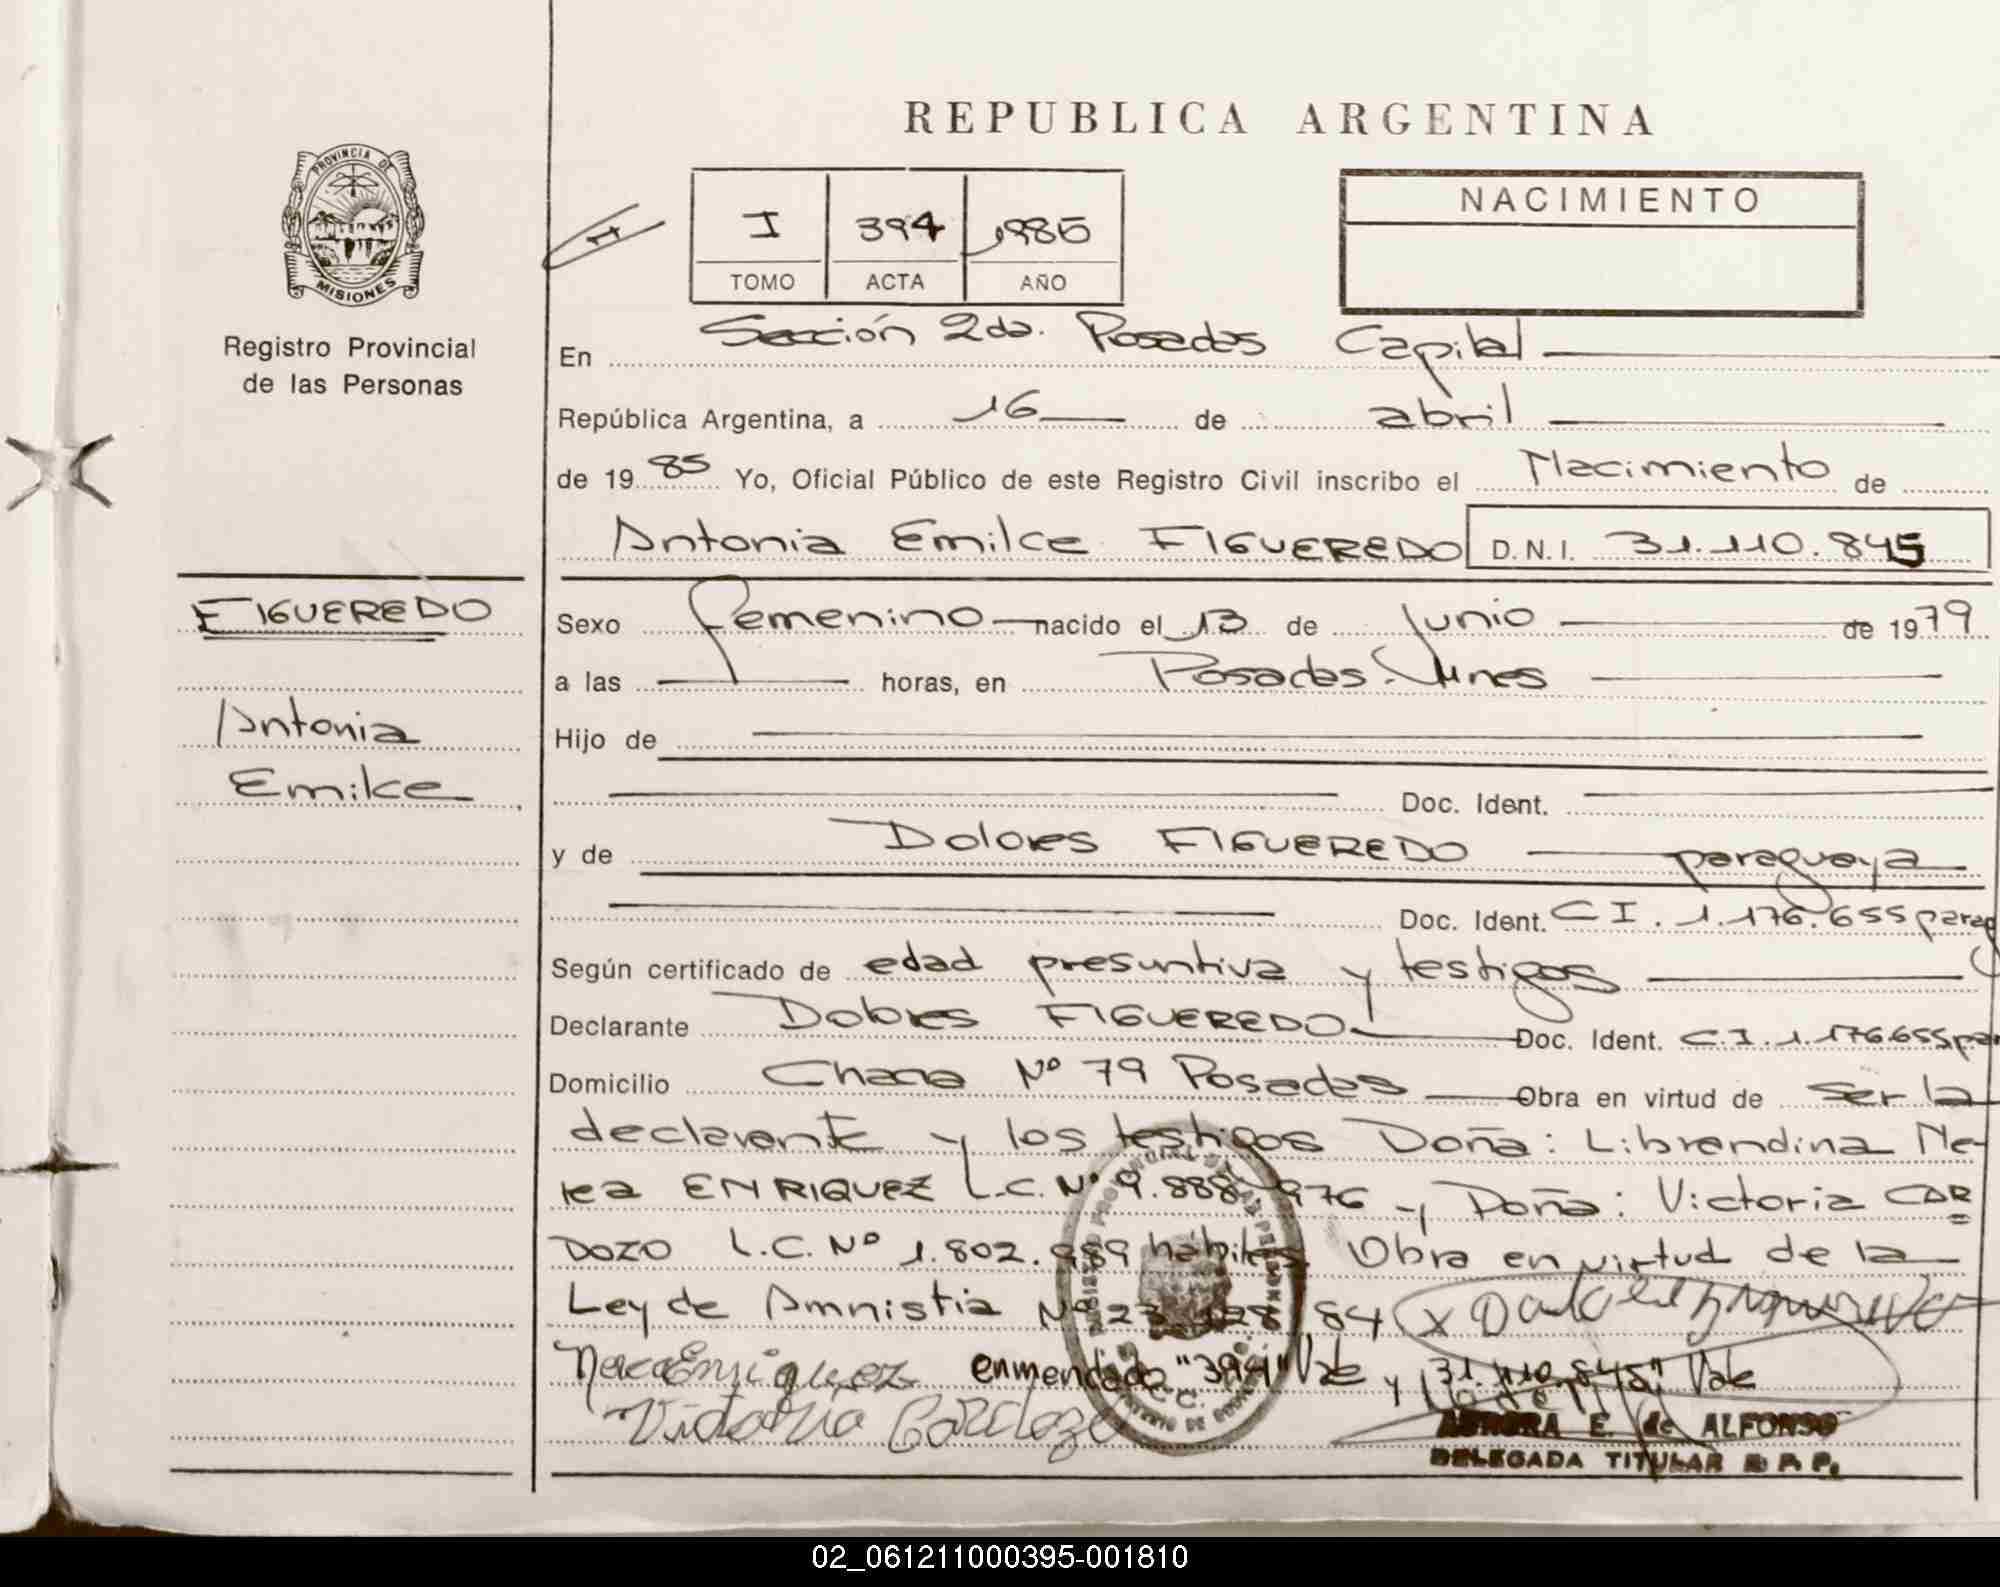 REPUBLICA ARGENTINA
PROVINCIA DE
MISIONES
Registro Provincial
de las Personas
I 394 1985
TOMO ACTA AÑO
NACIMIENTO
En Sección 2da. Posadas Capital
República Argentina, a 16 de abril
de 1985 Yo, Oficial Público de este Registro Civil inscribo el Nacimiento de
Antonia Emilce FIGUEREDO D.N.I. 31.110.845
FIGUEREDO
Antonia
Emilce
Sexo femenino nacido el 13 de junio de 1979
a las horas, en Posadas. Mnes
Hijo de
Doc. Ident.
y de Dolores FIGUEREDO paraguaya
Doc. Ident. CI. 1.176.655 parag
Según certificado de edad presuntiva y testigos
Declarante Dolores FIGUEREDO Doc. Ident. C.I. 1.176.655 par
Domicilio Chacra Nº 79 Posadas Obra en virtud de ser la
declarante y los testigos Doña: Librandina Ne-
rea ENRIQUEZ L.C. Nº 9.888.976 y Doña: Victoria CAR
DOZO L.C. Nº 1.802.989 hábiles. Obra en virtud de la
Ley de Amnistia Nº 23.128 84 x
Nerea Enriquez enmendado "394" Vale y "31.110.845" Vale
Victoria Cardozo
AURORA E. de ALFONSO
DELEGADA TITULAR R. P. P.
02_061211000395-001810